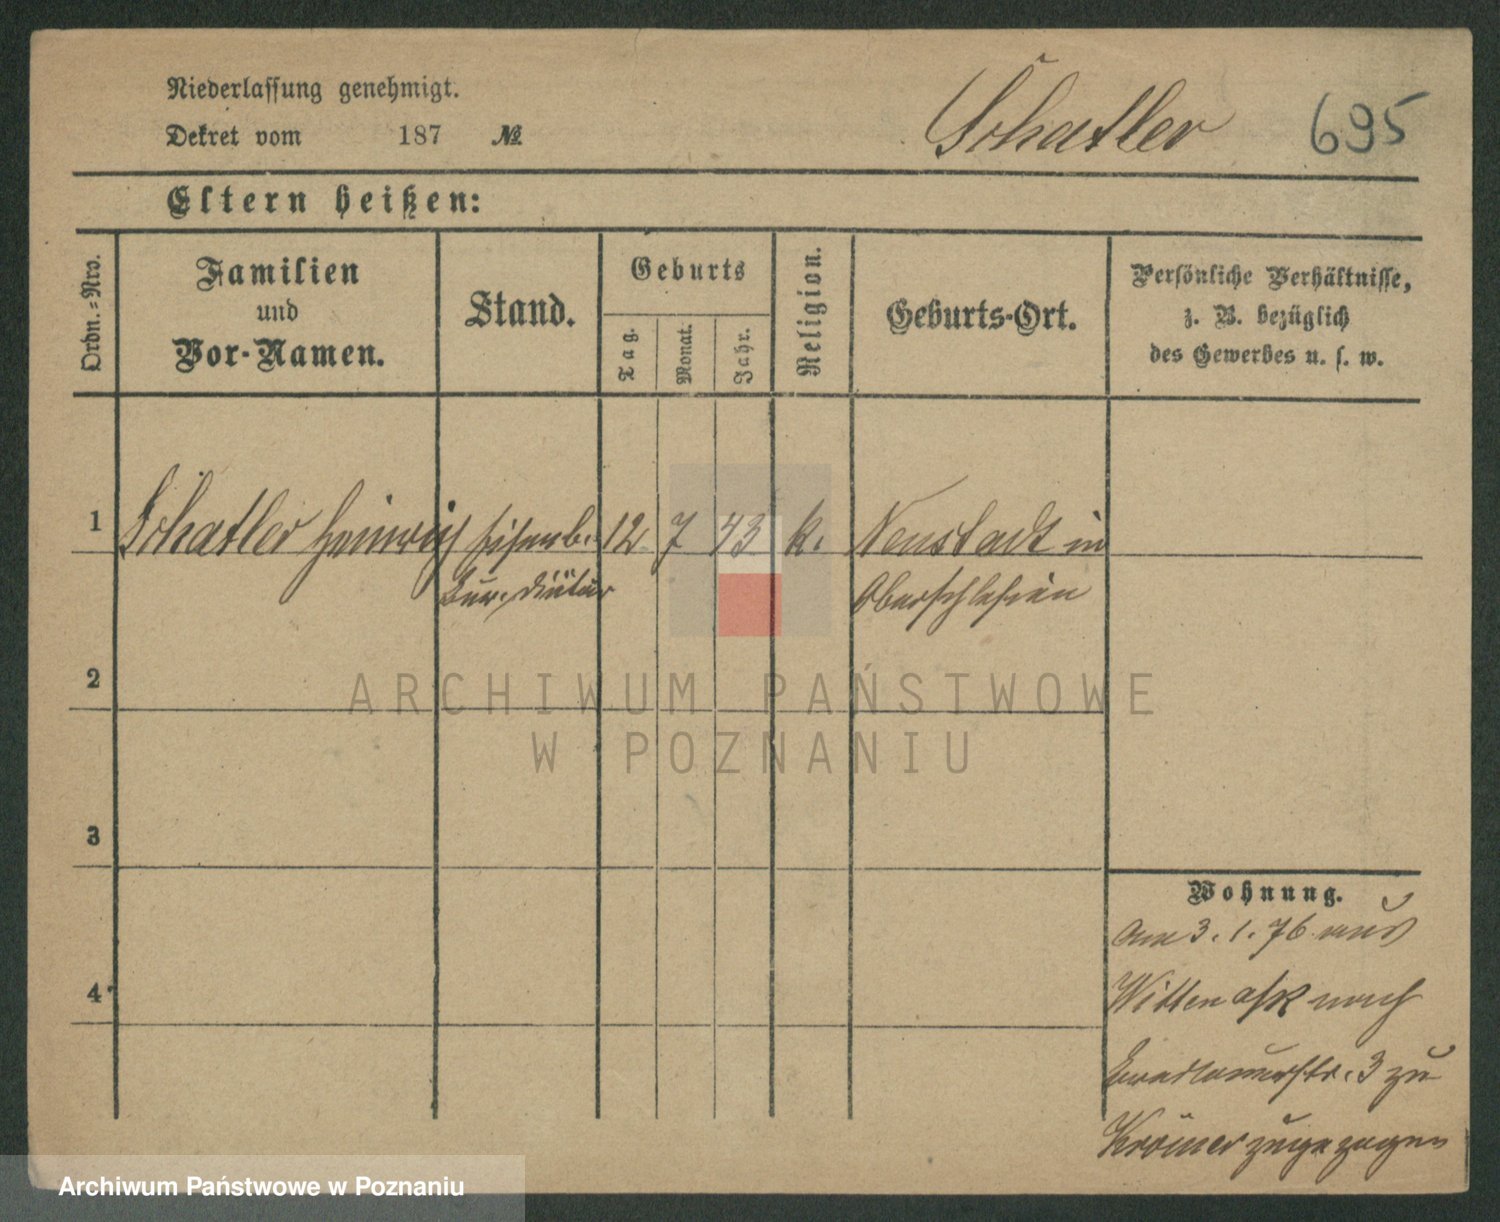 Niederlassung genehmigt.
Dekret vom 187 №
Schatler 695
Eltern heißen:
Ordn.-Nro.
Familien
und
Vor-Namen.
Stand.
Geburts
Tag.
Monat.
Jahr.
Religion.
Geburts-Ort.
Persönliche Verhältnisse,
z. B. bezüglich
des Gewerbes u. s. w.
1 Schatler Heinrich Eisenb. 12 7 43 k. Neustadt in
Bur. Diätar Oberschlesien
2
3
4
Wohnung.
Am 3. 1. 76 aus
Witten nach
Breslauerstr. 3 zu
Krömer zugezogen
ARCHIWUM PAŃSTWOWE
W POZNANIU
Archiwum Państwowe w Poznaniu